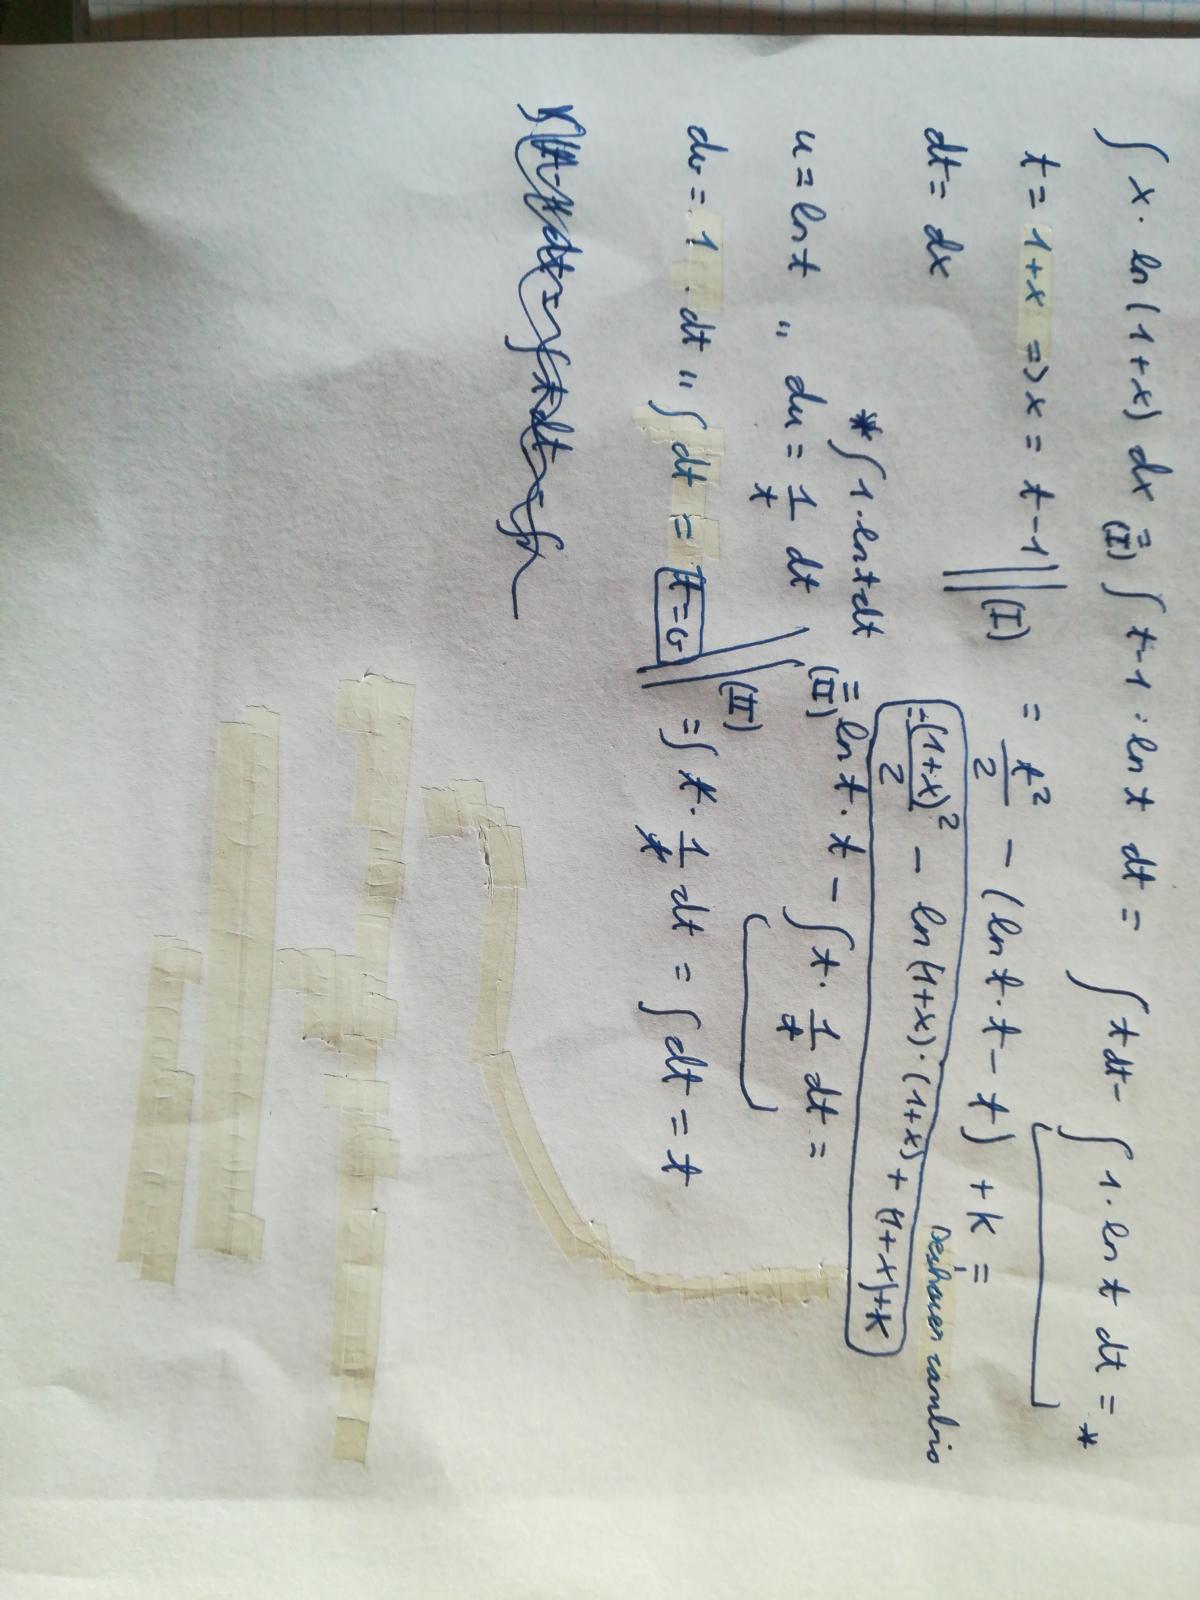 ∫ x · ln(1+x) dx =(I) ∫ t-1 · ln t dt = ∫ t dt - ∫ 1 · ln t dt = *
t = 1+x => x = t-1 || (I) = t²/2 - (ln t · t - t) + k =
dt = dx
Deshacer cambio
= (1+x)²/2 - ln(1+x) · (1+x) + (1+x) + k
* ∫ 1 · ln t dt =(II) ln t · t - ∫ t · 1/t dt =
u = ln t ,, du = 1/t dt || (II)
dv = 1 · dt ,, ∫ dt = t = v || = ∫ t · 1/t dt = ∫ dt = t